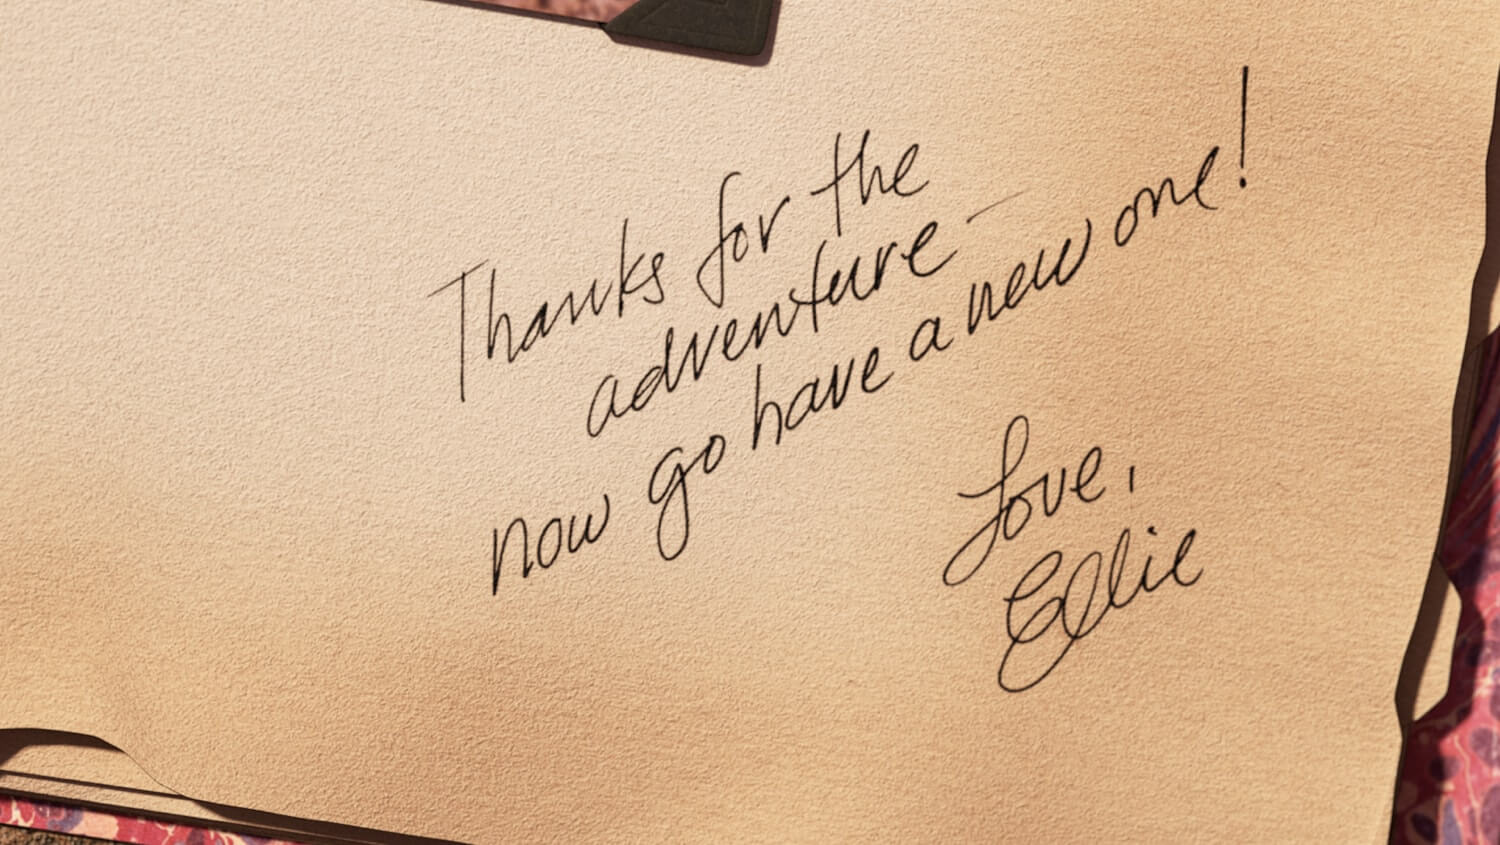 Thanks for the
adventure —
now go have a new one!
Love,
Ellie